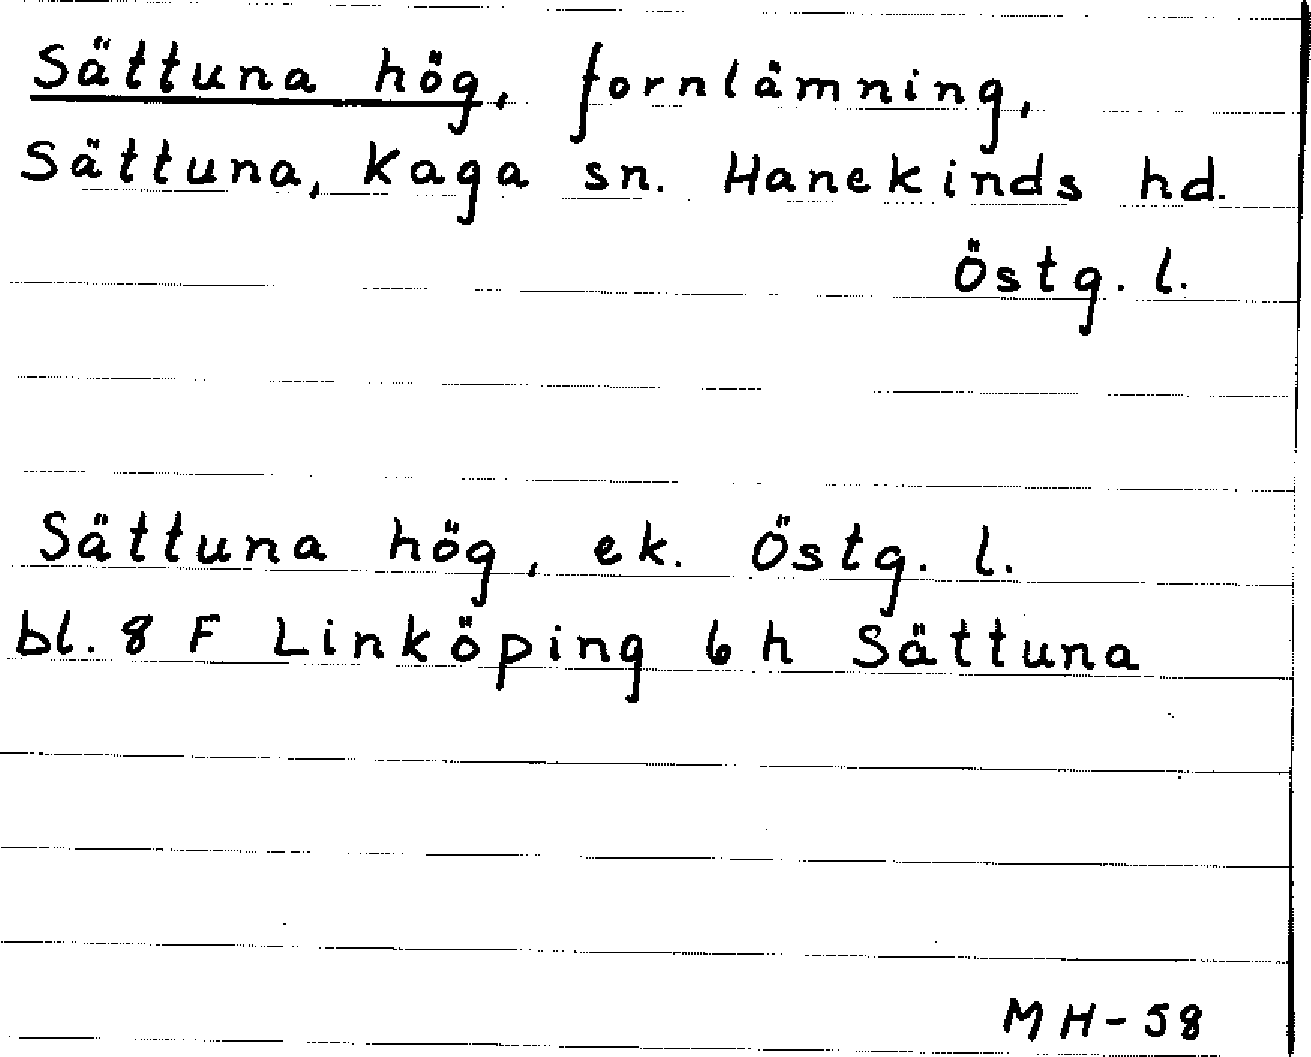 Sättuna hög, fornlämning,
Sättuna, Kaga sn. Hanekinds hd.
Östg. l.
Sättuna hög, ek. Östg. l.
bl. 8 F Linköping 6 h Sättuna
MH-58